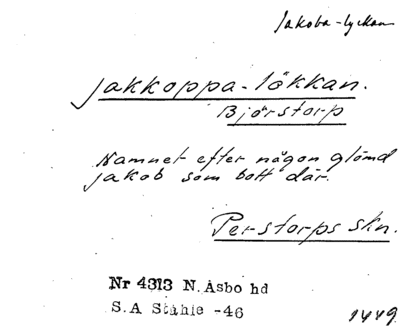 Jakoba-lyckan
Jakkoppa-lökkan.
Björstorp
Namnet efter någon glömd
Jakob som bott där.
Perstorps skn.
Nr 4313 N. Åsbo hd
S.A Ståhle -46
1449